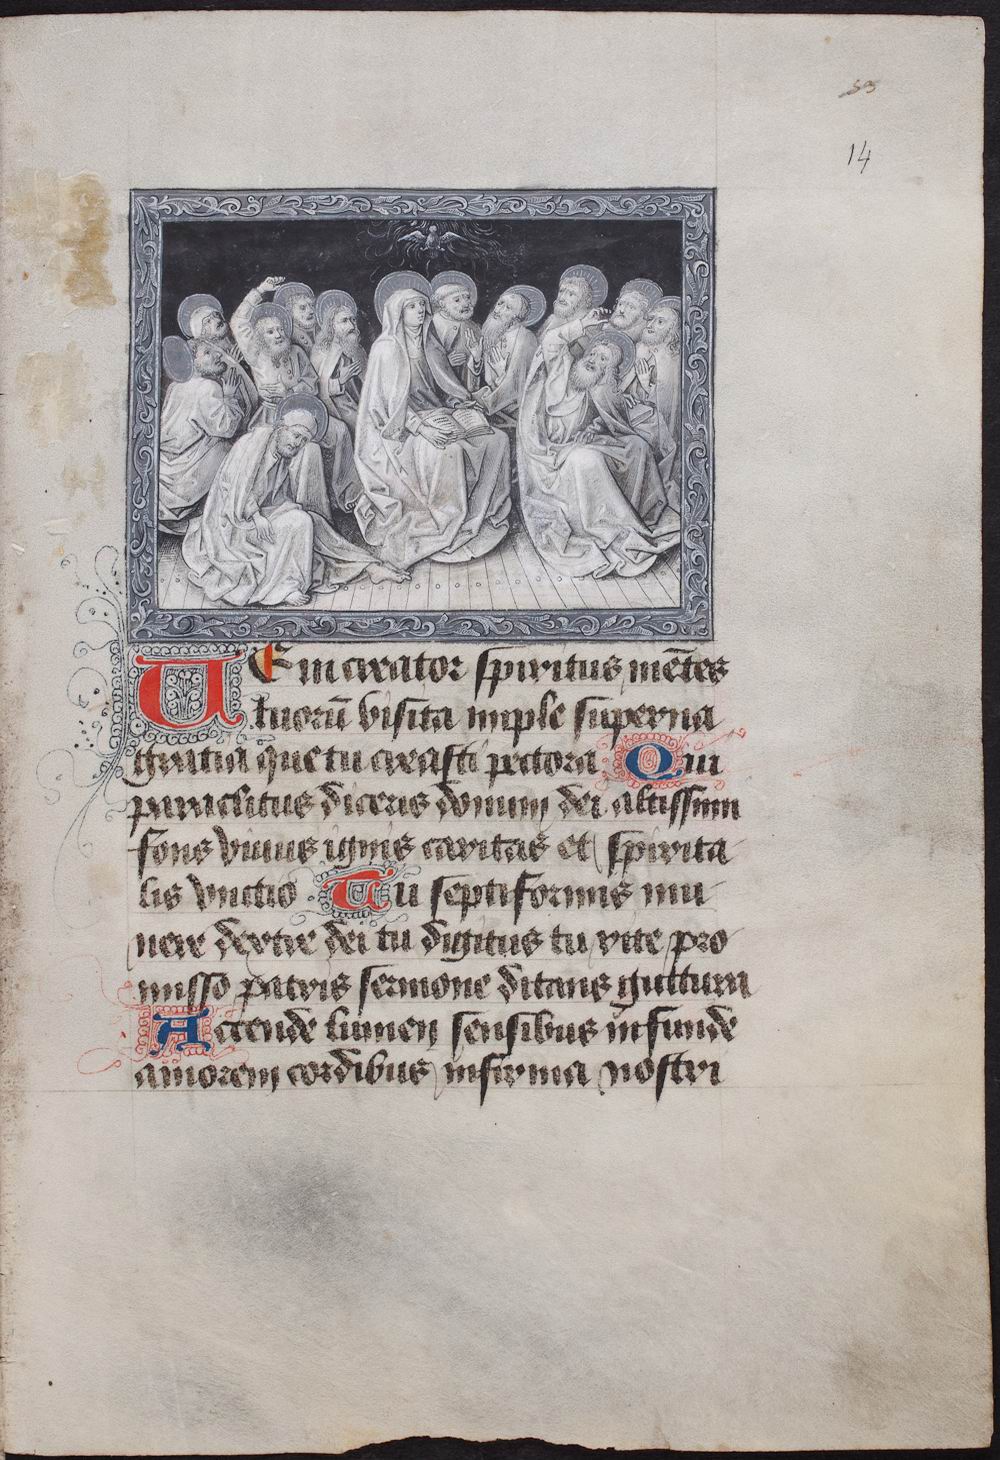 53
14
VEni creator spiritus mētes
tuorū visita imple superna
gratia que tu creasti pectora Qui
paraclitus diceris donum dei altissimi
fons viuus ignis caritas et spirita
lis vnctio Tu septiformis mu
nere dextre dei tu digitus tu rite pro
misso patris sermone ditans guttura
Accende lumen sensibus infunde
amorem cordibus infirma nostri